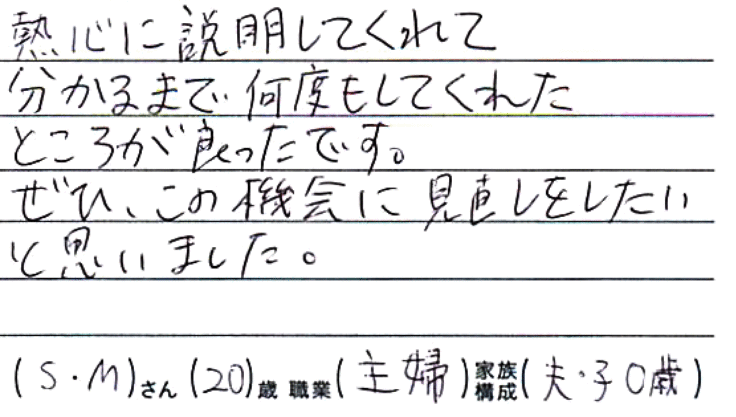 熱心に説明してくれて
分かるまで何度もしてくれた
ところが良ったです。
ぜひ、この機会に見直しをしたい
と思いました。
(S・M)さん(20)歳 職業(主婦)家族構成(夫・子0歳)